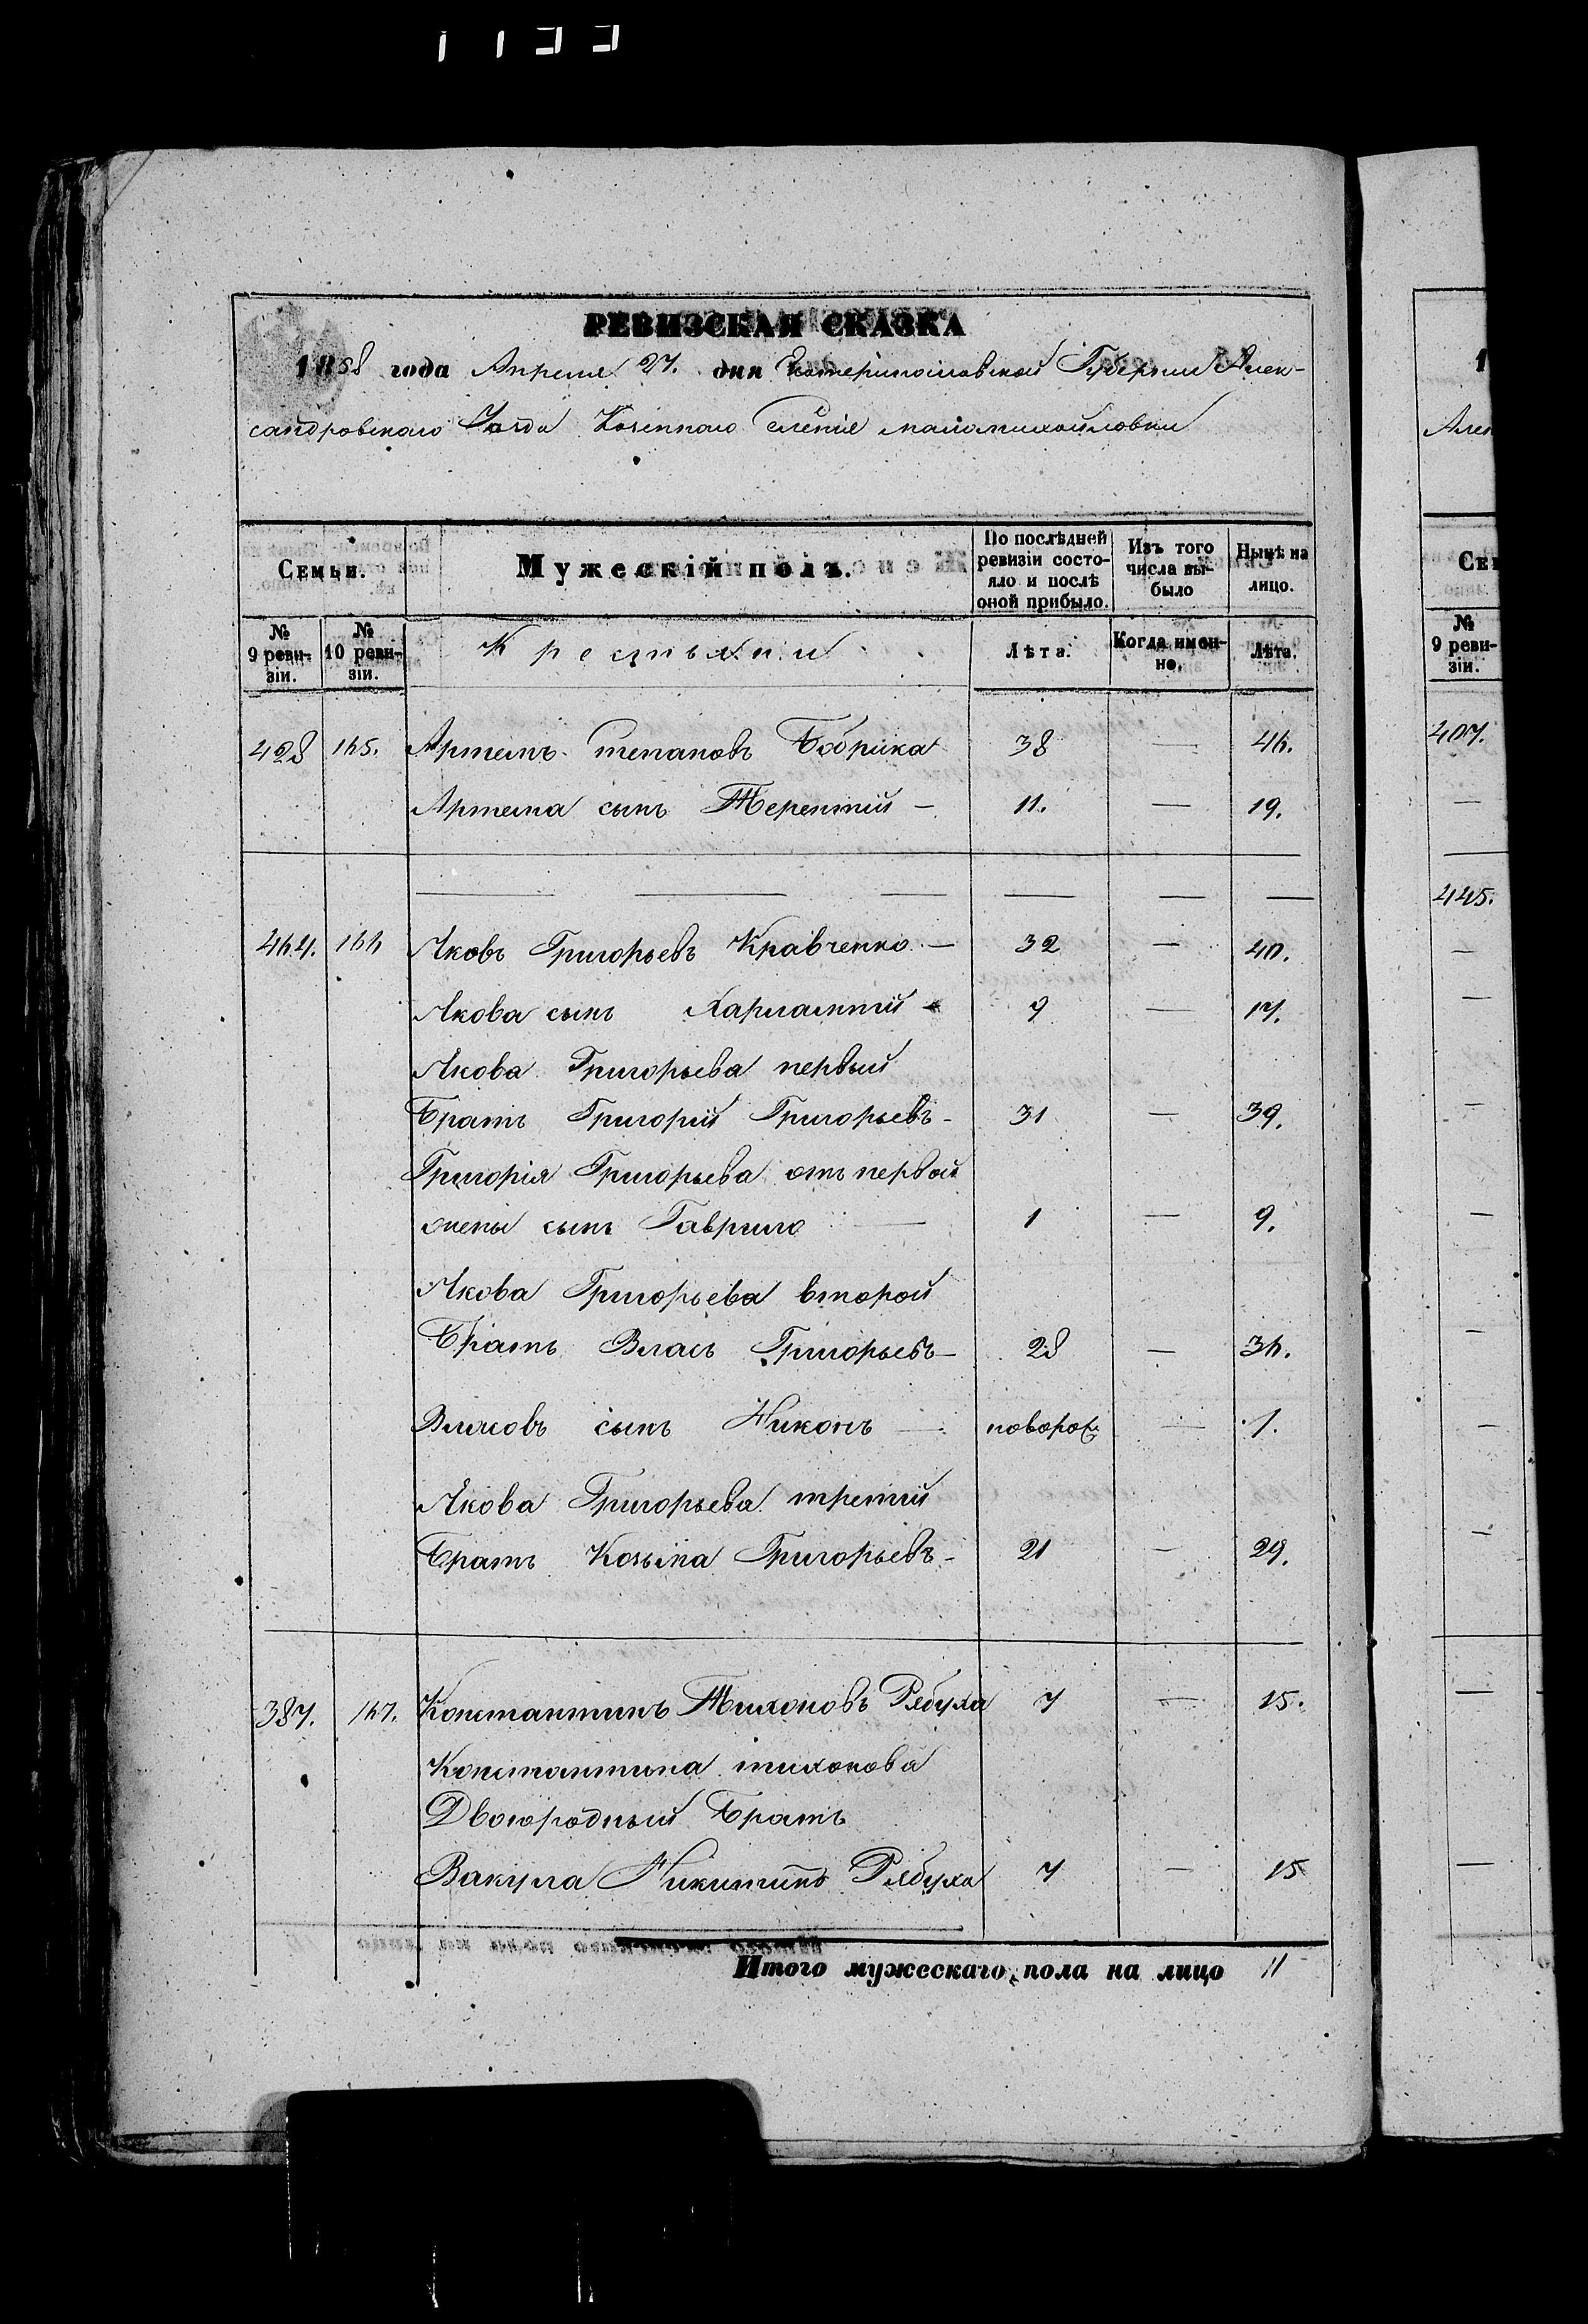 РЕВИЗСКАЯ СКАЗКА
1858 года Апреля 27. дня Екатеринославской Губернии Алек-
сандровского Уезда Казенного Селенія маломихайловки
Семьи.
Мужескій полъ.
По послѣдней ревизіи состояло и послѣ оной прибыло.
Изъ того числа выбыло
Нынѣ на лицо.
№ 9 ревизіи.
№ 10 ревизіи.
Крестьяни
Лѣта.
Когда именно.
Лѣта.
428 165. Артемъ степановъ Бобрика 38 — 46.
Артема сынъ Терентий — 11. — 19.
— — — — — —
464. 166 Яковъ Григорьевъ Кравченко — 32 — 40.
Якова сынъ Харлампий — 9 — 17.
Якова Григорьева первый
Братъ Григорий Григорьевъ — 31 — 39.
Григорія Григорьева отъ первой
жены сынъ Гаврило — 1 — 9.
Якова Григорьева второй
Братъ Власъ Григорьевъ — 28 — 36.
Власовъ сынъ Никонъ — новорож — 1.
Якова Григорьева третий
Братъ Козьма Григорьевъ — 21 — 29.
387. 167. Константинъ Тихоновъ Рябуха 7 — 15.
Константина тихонова
Двоюродный Братъ
Вакула Никитинъ Рябуха 7 — 15
Итого мужескаго пола на лицо 11
1
Але
Се
№ 9 ревизіи.
407.
—
445.